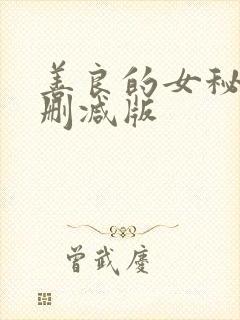 善良的女秘
删减版
曾武庆